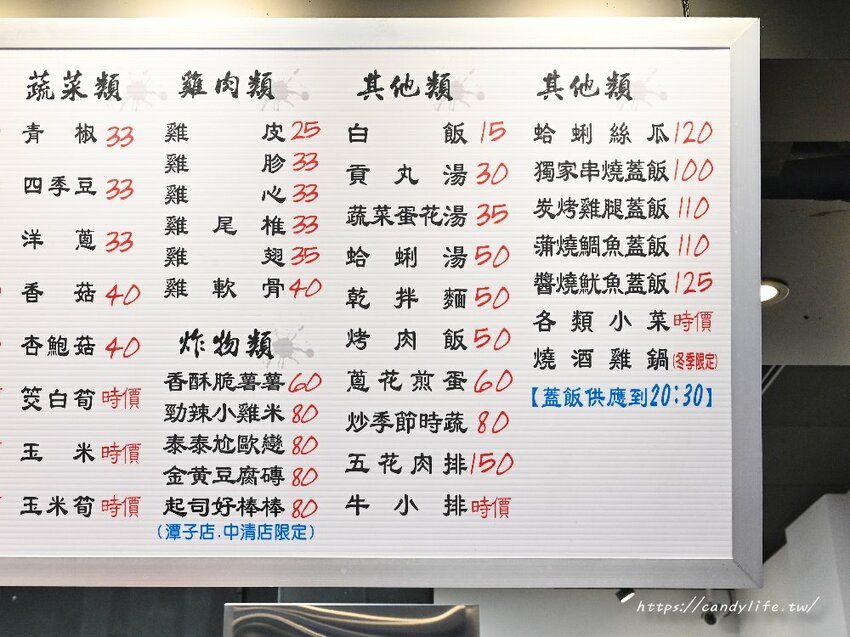 蔬菜類
青椒 33
四季豆 33
洋蔥 33
香菇 40
杏鮑菇 40
筊白筍 時價
玉米 時價
玉米筍 時價
雞肉類
雞皮 25
雞胗 33
雞心 33
雞尾椎 33
雞翅 35
雞軟骨 40
炸物類
香酥脆薯薯 60
勁辣小雞米 80
泰泰尬歐戀 80
金黃豆腐磚 80
起司好棒棒 80
(潭子店.中清店限定)
其他類
白飯 15
貢丸湯 30
蔬菜蛋花湯 35
蛤蜊湯 50
乾拌麵 50
烤肉飯 50
蔥花煎蛋 60
炒季節時蔬 80
五花肉排 150
牛小排 時價
其他類
蛤蜊絲瓜 120
獨家串燒蓋飯 100
炭烤雞腿蓋飯 110
蒲燒鯛魚蓋飯 110
醬燒魷魚蓋飯 125
各類小菜 時價
燒酒雞鍋 (冬季限定)
【蓋飯供應到20:30】
https://candylife.tw/